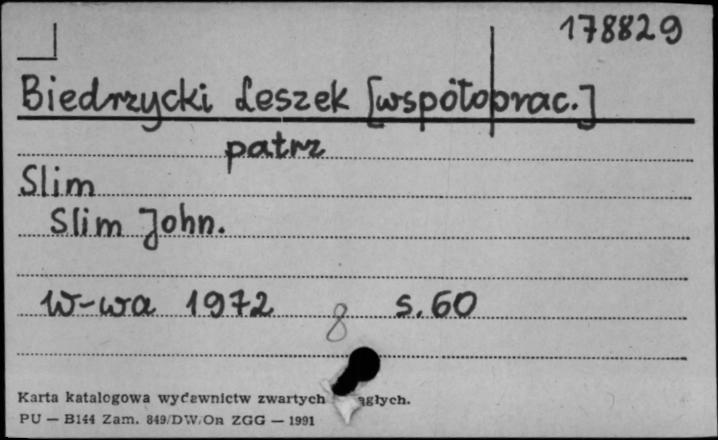 178829
Biedrzycki Leszek [współoprac.]
patrz
Slim
Slim John.
W-wa 1972 s. 60
8
Karta katalogowa wydawnictw zwartych ągłych.
PU — B144 Zam. 849/DW/On ZGG — 1991